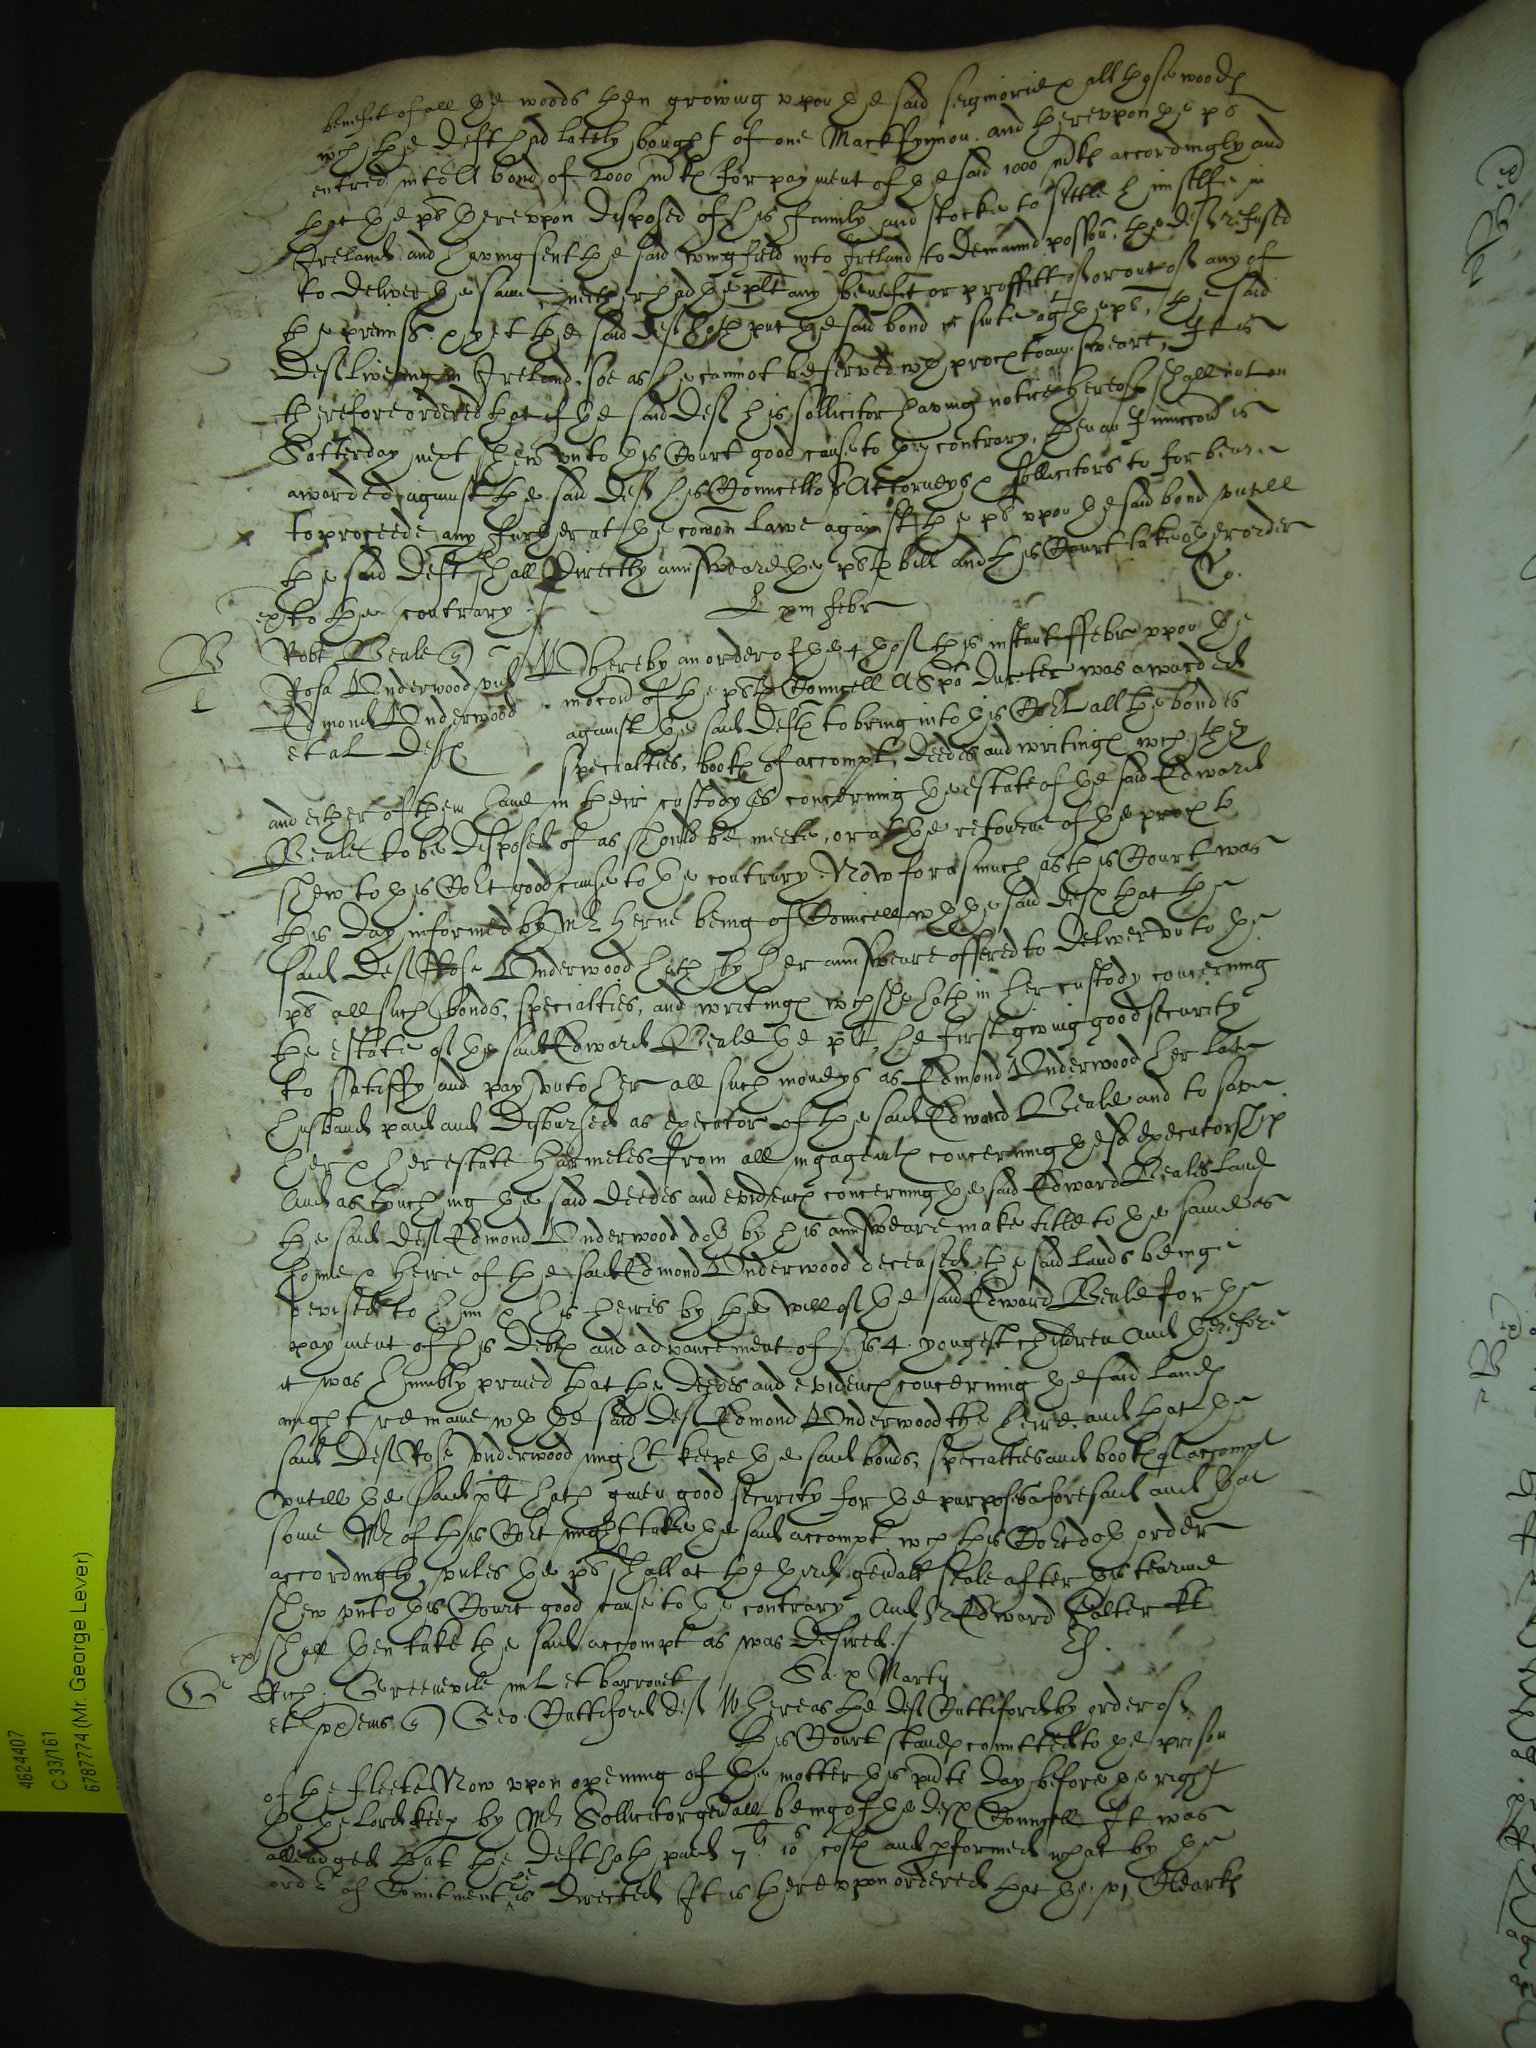 benefit of all the woods then growing upon the said seigniorie & all those woods
wch the deft had lately bought of one Mackfynnon. and thereupon the pt
entred into A bond of 2000 mrks for payment of the said 1000 mrks accordingly and
that the pt thereupon disposed of his family and stocke to settle himselfe in
Ireland and having sent the said wingfield into Ireland to demaund possion. the deft refused
to deliver the same neither had the plt any benefit or proffitt of or out of any of
the premiss. & yet the said deft hath put the said bond in suite agt the pt, the said
deft liveing in Ireland. soe as he cannot be served wth proces to answeare, It is
therefore ordered that if the said deft his sollicitor having notice hereof shall not on
Satterday next shew unto this Court good cause to the contrary, then an Iniunccon is
awarded against the said deft his Councello & Attorneys & sollicitors to forbear
to proceede any further at the comon lawe against the pt upon the said bond untill
the said deft shall directly answeare the plts bill and this Court take other order
ex to the contrary
Co.
L xiii febr
B
l
Robt Beale
Rosa Underwood vid
Edmond Underwood
et al defts
Whereby an order of the 4th of this instant ffebr upon the
mocon of the plts Councell A Spa ducitec was awarded
against the said defts to bring into this Cort all the bondes
specialties, books of accompt, deedes and writings wch they
and either of them have in their custody concerning the estate of the said Edward
Beale to be disposed of as should be meete, or at the retourne of the proces to
shew to this Cort good cause to the contrary. Now forasmuch as this Court was
this day informed by Mr Herne being of Councell wth the said defts that the
said deft Rose Underwood hath by her answeare offered to deliver unto the
pt all such bonds, specialties, and writings wch she hath in her custody concerning
the estate of the said Edward Beale the plt, he first giving good security
to satisfy and pay unto her all such moneys as Edmond Underwood her late
husband paid and disbursed as executor of the said Edward Beale and to save
her & her estate harmeles from all ingagemts concerning the sd executorship
And as touching the said deedes and evidences concerning the said Edward Beales lands
the said deft Edmond Underwood doth by his answeare make title to the same as
sonne & heire of the said Edmond Underwood deceased, the said lands being
devised to him & his heires by the will of the said Edward Beale for the
payment of his debts and advancement of his 4. yongest children And therefore
it was humbly praied that the deedes and evidences concerning the said lands
might remaine wth the said deft Edmond Underwood the heire, and that the
said deft Rose Underwood might keepe the said bonds, specialties and books of accompt
untill the said plt hath given good security for the purposes aforesaid and that
some Mr of this Cort might take the said accompt, wch this Cort doth order
accordingly, unles the pt shall at the third generall seale after this tearme
shew unto this Court good cause to the contrary, And Sr Edward Salter kt
ex shall then take the said accompt as was desired.
Ch.
Sa. x Marty
Gr
Rich Greenevile mil et barronet
et ux eius Geo. Cuttiford deft
Whereas the deft Cuttiford by order of
this Court stands comitted to the prison
of the fleete Now upon opening of the matter this pnte day before the right
ho the Lord keep by Mr Sollicitor generall being of the defts Councell It was
alleadged that the deft hath paid 7l 10s costs and pformed what by the
order of Comitment is directed It is thereupon ordered that the
4624407
C 33/161
6787774 (Mr. George Lever)